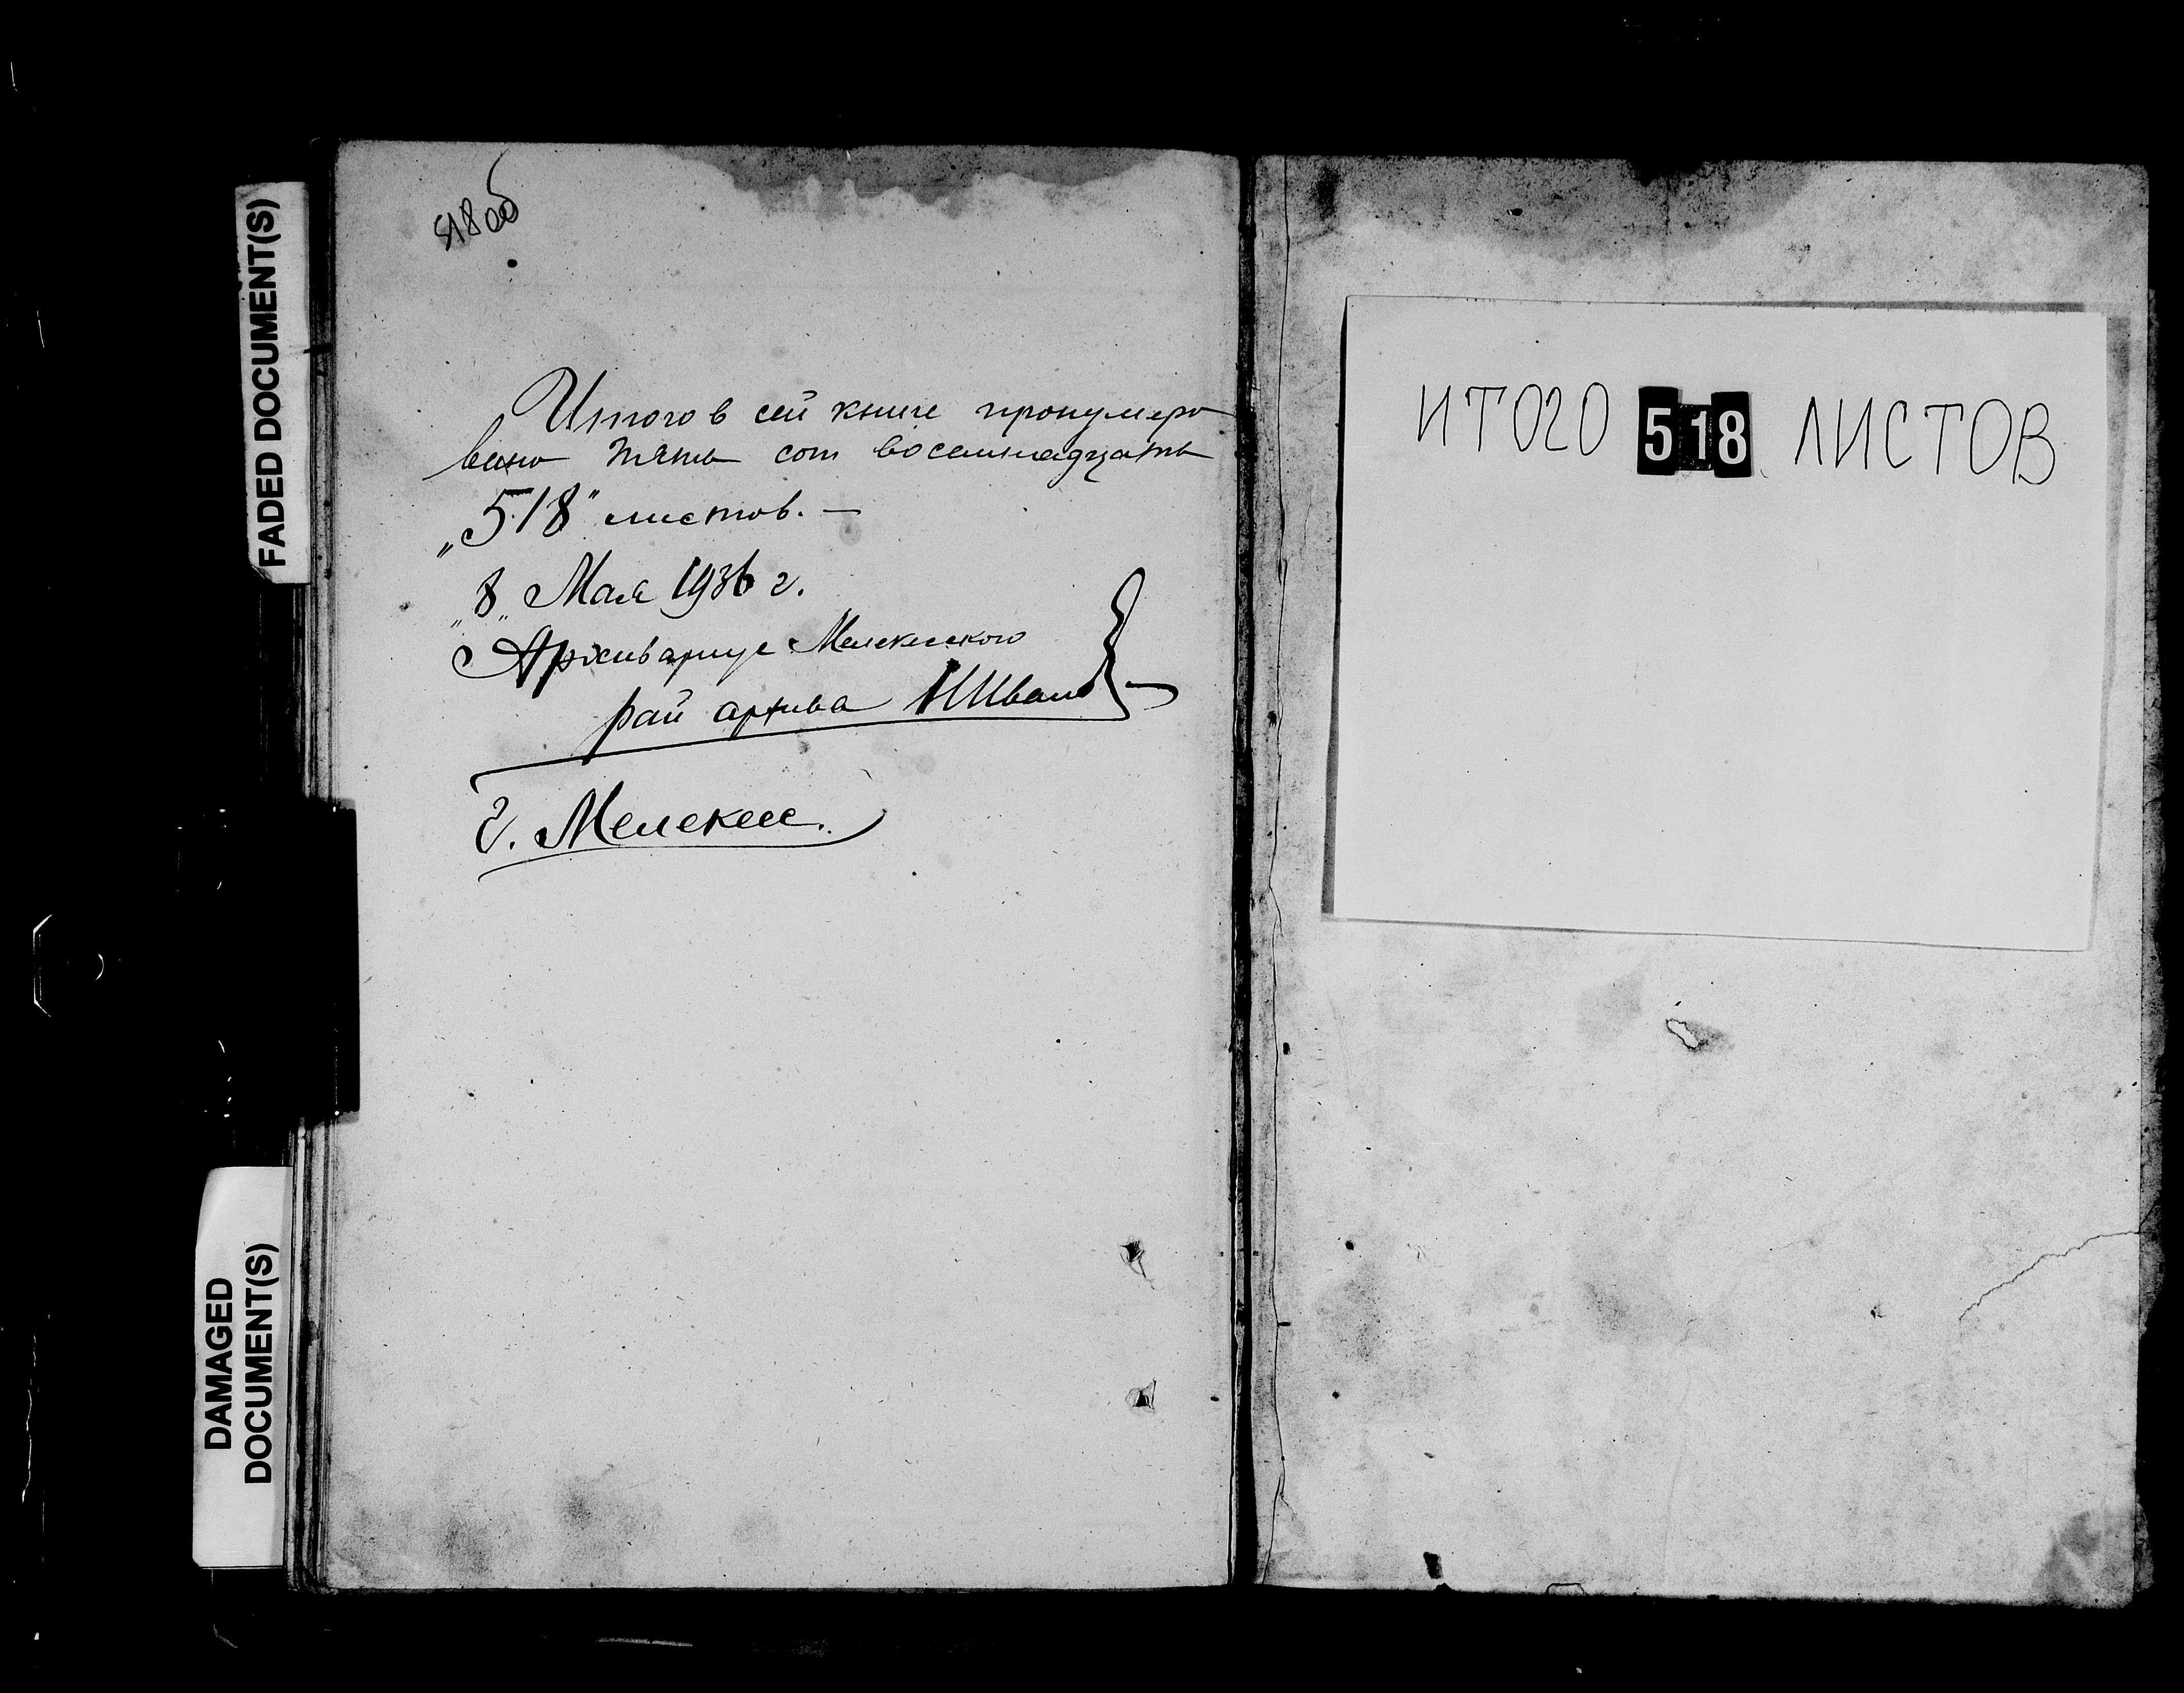 FADED DOCUMENT(S)
DAMAGED
DOCUMENT(S)
518 об
Итого в сей книге пронумеро
вано пять сот восемнадцать
„518" листов. —
„8„ Мая 1936 г.
Архивариус Мелекесского
рай архива
г. Мелекесс.
ИТОГО 518 ЛИСТОВ